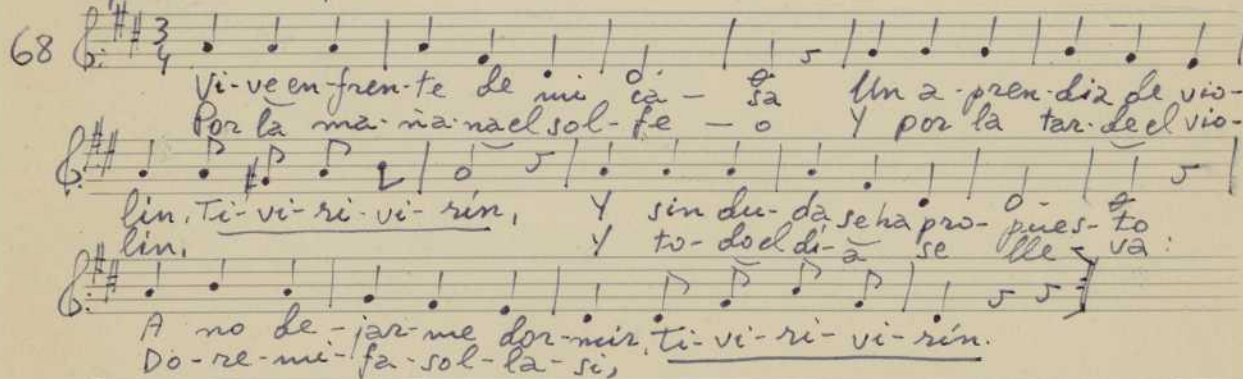 68 3/4
Vi-ve en-fren-te de mi ca-sa Un a-pren-diz de vio-
Por la ma-ña-na el sol-fe-o Y por la tar-de el vio-
lin, Ti-vi-ri-vi-rín, Y sin du-da se ha pro-pues-to
lin. Y to-do el dí-a se lle-va:
A no de-jar-me dor-mir, Ti-vi-ri-vi-rín.
Do-re-mi-fa-sol-la-si,